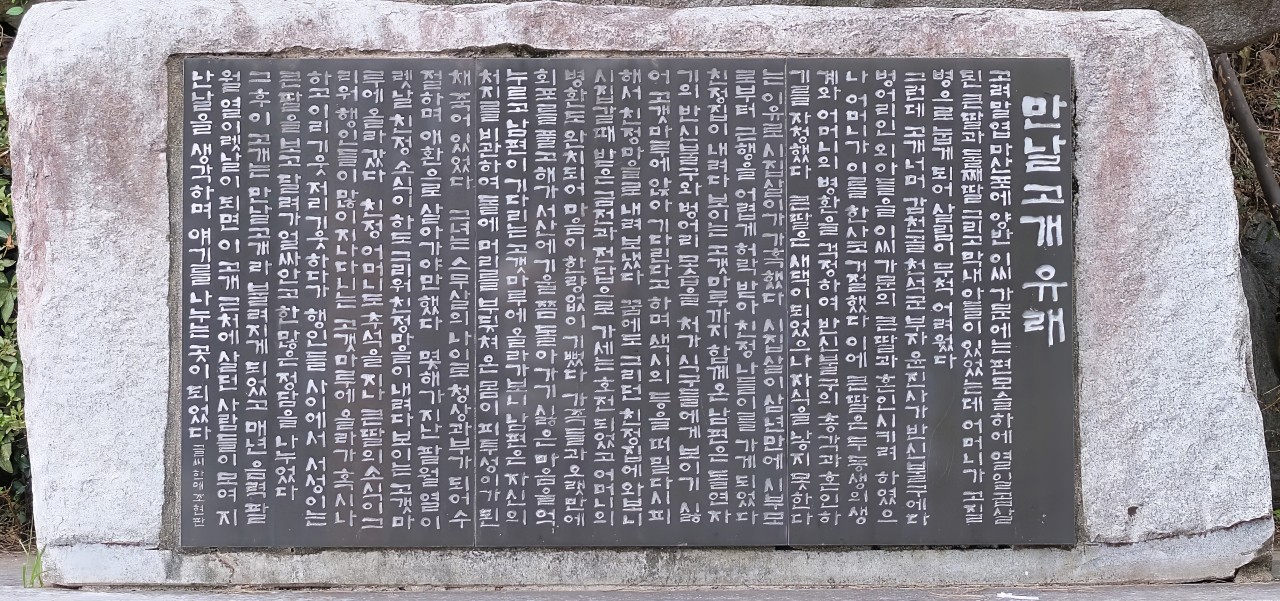 만날고개 유래
고려말엽 마산포에 양반 이씨 가문에는 편모슬하에 열일곱살
된 큰딸과 둘째딸 그리고 막내아들이 있었는데 어머니가 고질
병으로 눕게 되어 살림이 무척 어려웠다
그런데 고개너머 감천골 천석군 부자 윤진사가 반신불구에다
벙어리인 외아들을 이씨 가문의 큰딸과 혼인시키려 하였으
나 어머니가 이를 한사코 거절했다 이에 큰딸은 두 동생의 생
계와 어머니의 병환을 걱정하여 반신불구의 총각과 혼인하
기를 자청했다 큰딸은 새댁이 되었으나 자식을 낳지 못한다
는 이유로 시집살이가 가혹했다 시집살이 삼년만에 시부모
로부터 근행을 어렵게 허락 받아 친정 나들이를 가게 되었다
친정집이 내려다 보이는 고갯마루까지 함께 온 남편은 돌연 자
기의 반신불구와 벙어리 모습을 처가 식구들에게 보이기 싫
어 고갯마루에 앉아 기다린다고 하며 색시의 등을 떠밀다시피
해서 친정마을로 내려 보냈다 꿈에도 그리던 친정집에 와보니
시집갈때 받은 금전과 전답으로 가세는 호전 되었고 어머니의
병환도 완치되어 마음이 한량없이 기뻤다 가족들과 오랫만에
회포를 풀고 해가 서산에 기울 쯤 돌아가기 싫은 마음을 억
누르고 남편이 기다리는 고갯마루에 올라가보니 남편은 자신의
처지를 비관하여 돌에 머리를 부딪쳐 온 몸이 피투성이가 된
채 죽어 있었다 그녀는 스무살의 나이로 청상과부가 되어 수
절하며 애환으로 살아가야만 했다 몇해가 지난 팔월 열이
렛날 친정 소식이 하도 그리워 친정마을이 내려다 보이는 고갯마
루에 올라 갔다 친정 어머니도 추석을 지나 큰딸의 소식이 그
리워 행인들이 많이 지나다니는 고갯마루에 올라가 혹시나
하고 이리 기웃 저리 기웃하다가 행인들 사이에서 서성이는
큰딸을 보고 달려가 얼싸안고 한 많은 정담을 나누었다
그 후 이 고개는 만날고개라 불려지게 되었고 매년 음력 팔
월 열이렛날이 되면 이 고개 근처에 살던 사람들이 모여 지
난날을 생각하며 얘기를 나누는 곳이 되었다 글씨 하애 조현판